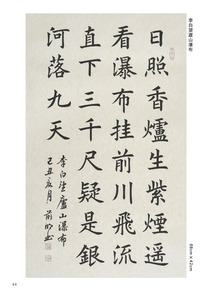 李白望廬山瀑布
日照香爐生紫煙遥
看瀑布挂前川飛流
直下三千尺疑是銀
河落九天
李白望廬山瀑布
己丑夏月前明書
68cm×42cm